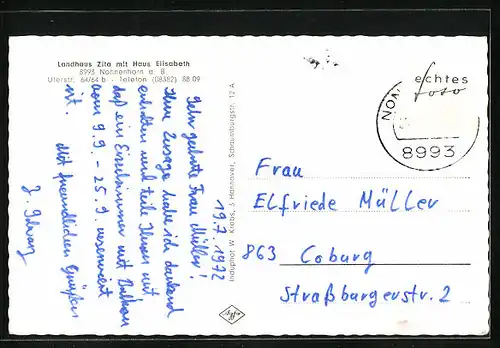 Landhaus Zita mit Haus Elisabeth
8993 Nonnenhorn a. B.
Uferstr. 64/64 b - Telefon (08382) 88 09
19.7.1972
Sehr geehrte Frau Müller!
Ihre Zusage habe ich dankend
erhalten und teile Ihnen mit
daß ein Einzelzimmer mit Balkon
vom 9.9. - 25.9. reserviert
ist.
Mit freundlichen Grüßen
Induphot W. Krebs, 3 Hannover, Schraunburgstr. 12 A
Agfa
echtes
foto
NON
8993
Frau
Elfriede Müller
863 Coburg
Straßburgerstr. 2